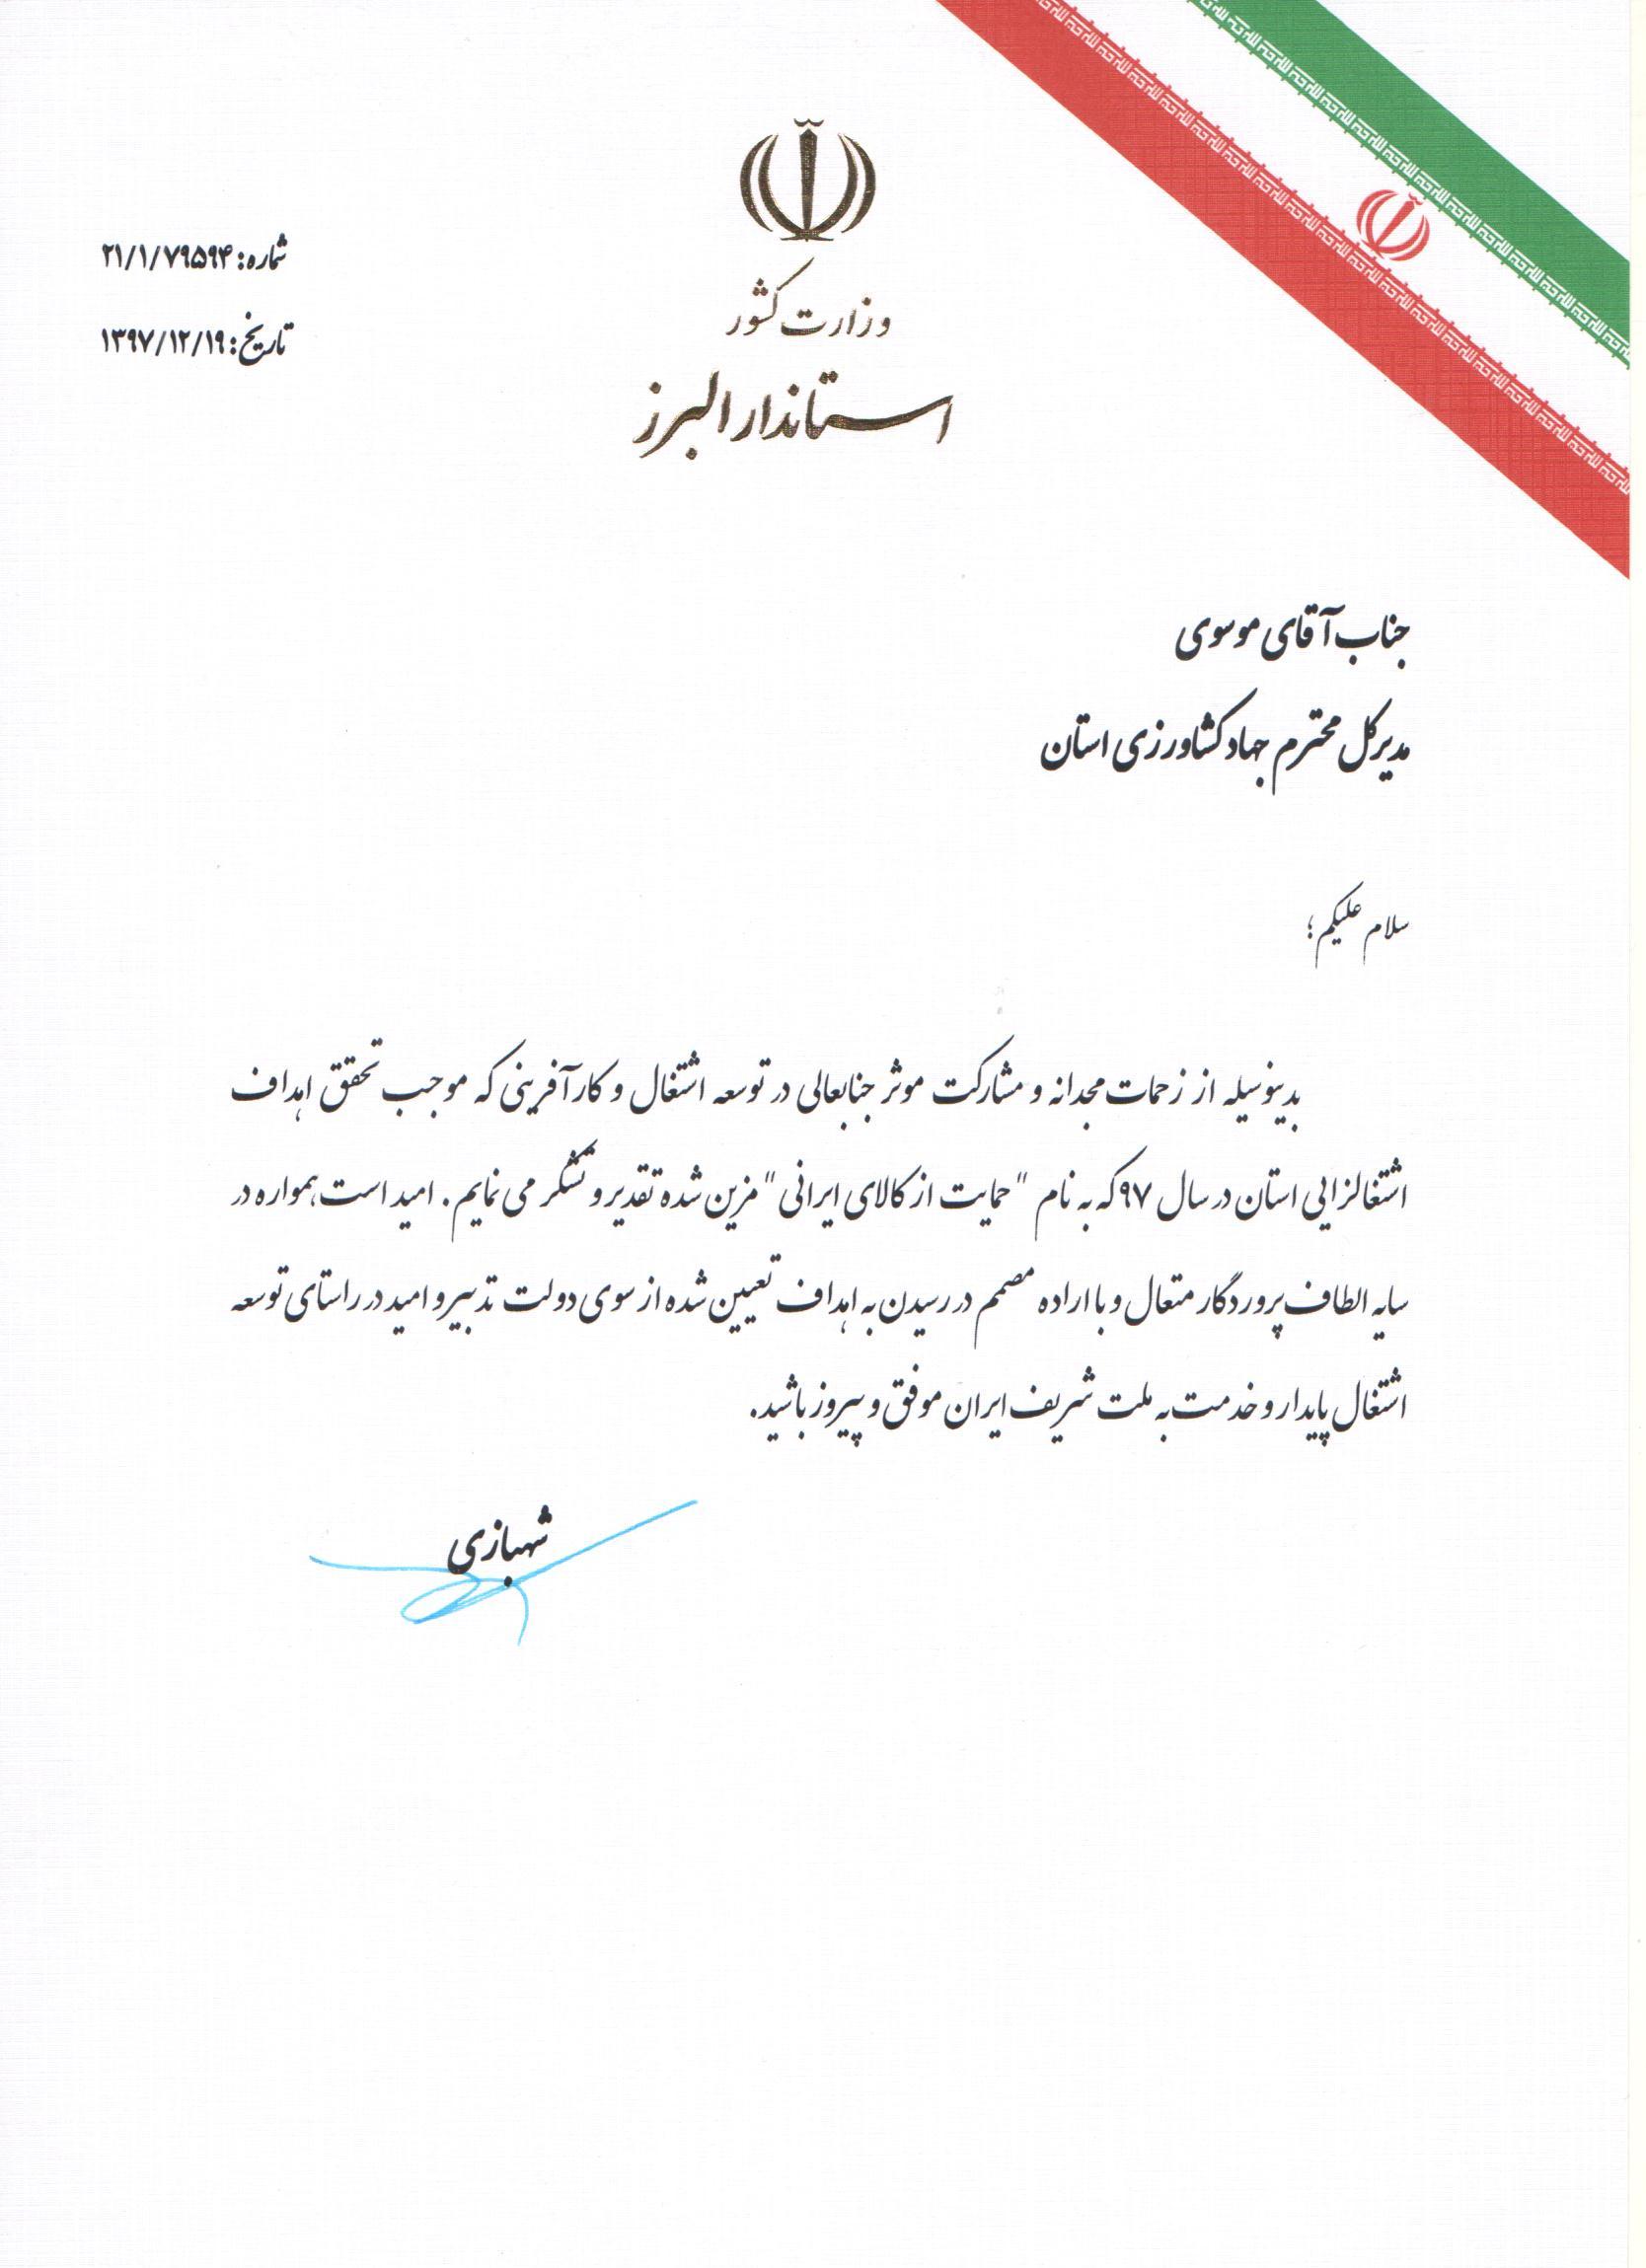 وزارت کشور
استاندار البرز
شماره: ۲۱/۱/۷۹۵۹۴
تاریخ: ۱۳۹۷/۱۲/۱۹
جناب آقای موسوی
مدیرکل محترم جهاد کشاورزی استان
سلام علیکم؛
بدینوسیله از زحمات مجدانه و مشارکت موثر جنابعالی در توسعه اشتغال و کارآفرینی که موجب تحقق اهداف
اشتغالزایی استان در سال ۹۷ که به نام "حمایت از کالای ایرانی" مزین شده تقدیر و تشکر می نمایم. امید است همواره در
سایه الطاف پروردگار متعال و با اراده مصمم در رسیدن به اهداف تعیین شده از سوی دولت تدبیر و امید در راستای توسعه
اشتغال پایدار و خدمت به ملت شریف ایران موفق و پیروز باشید.
شهبازی